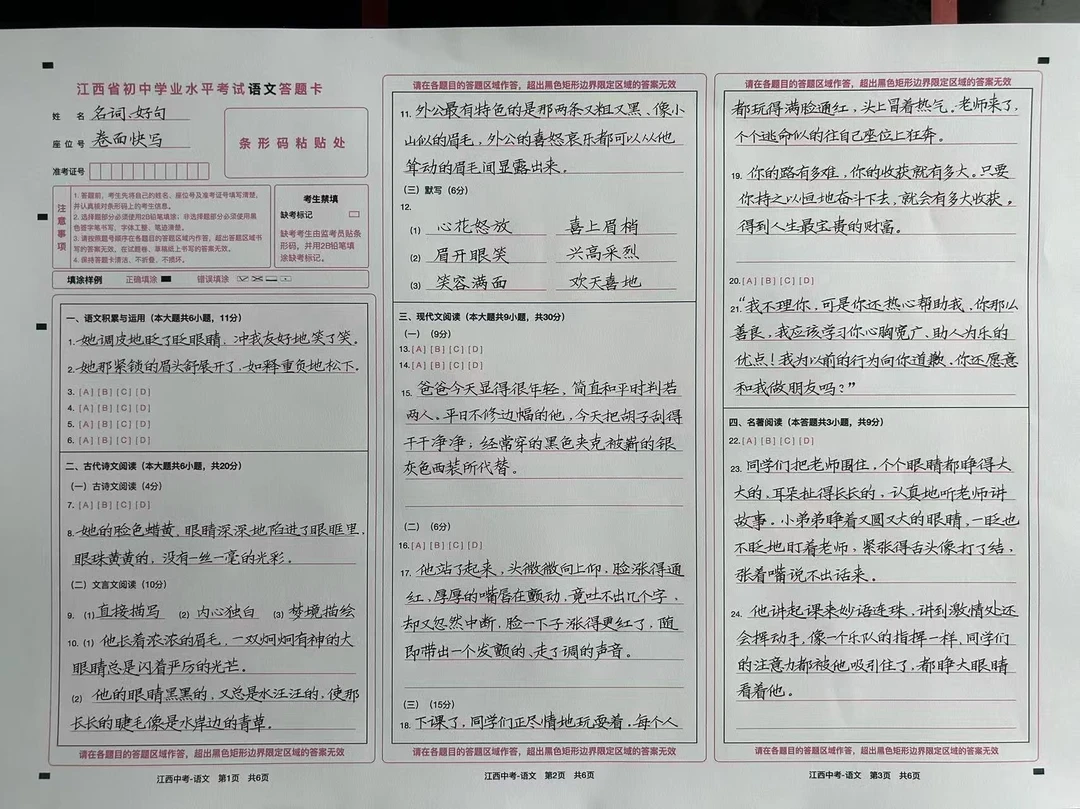 江西省初中学业水平考试语文答题卡
姓 名 名词、好句
座位号 卷面快写
准考证号
条形码粘贴处
注意事项
1. 答题前，考生先将自己的姓名、座位号及准考证号填写清楚，
并认真核对条形码上的考生信息。
2. 选择题部分必须使用2B铅笔填涂；非选择题部分必须使用黑
色签字笔书写，字体工整、笔迹清楚。
3. 请按照题号顺序在各题目的答题区域内作答，超出答题区域书
写的答案无效，在试题卷、草稿纸上书写的答案无效。
4. 保持答题卡清洁，不折叠、不损坏。
考生禁填
缺考标记
缺考考生由监考员贴条
形码，并用2B铅笔填
涂缺考标记。
填涂样例 正确填涂 错误填涂
一、语文积累与运用（本大题共6小题，11分）
1. 她调皮地眨了眨眼睛，冲我友好地笑了笑。
2. 她那紧锁的眉头舒展开了，如释重负地松下。
3. [A] [B] [C] [D]
4. [A] [B] [C] [D]
5. [A] [B] [C] [D]
6. [A] [B] [C] [D]
二、古代诗文阅读（本大题共6小题，共20分）
（一）古诗文阅读（4分）
7. [A] [B] [C] [D]
8. 她的脸色蜡黄，眼睛深深地陷进了眼眶里，
眼珠黄黄的，没有一丝一毫的光彩。
（二）文言文阅读（10分）
9. (1) 直接描写 (2) 内心独白 (3) 梦境描绘
10. (1) 他长着浓浓的眉毛，一双炯炯有神的大
眼睛总是闪着严厉的光芒。
(2) 他的眼睛黑黑的，又总是水汪汪的，使那
长长的睫毛像是水岸边的青草。
请在各题目的答题区域作答，超出黑色矩形边界限定区域的答案无效
江西中考-语文 第1页 共6页
请在各题目的答题区域作答，超出黑色矩形边界限定区域的答案无效
11. 外公最有特色的是那两条又粗又黑、像小
山似的眉毛，外公的喜怒哀乐都可以从他
耸动的眉毛间显露出来。
（三）默写（6分）
12.
(1) 心花怒放 喜上眉梢
(2) 眉开眼笑 兴高采烈
(3) 笑容满面 欢天喜地
三、现代文阅读（本大题共9小题，共30分）
（一）（9分）
13. [A] [B] [C] [D]
14. [A] [B] [C] [D]
15. 爸爸今天显得很年轻，简直和平时判若
两人。平日不修边幅的他，今天把胡子刮得
干干净净；经常穿的黑色夹克被崭的银
灰色西装所代替。
（二）（6分）
16. [A] [B] [C] [D]
17. 他站了起来，头微微向上仰，脸涨得通
红，厚厚的嘴唇在颤动，竟吐不出几个字，
却又忽然中断，脸一下子涨得更红了，随
即带出一个发颤的、走了调的声音。
（三）（15分）
18. 下课了，同学们正尽情地玩耍着，每个人
请在各题目的答题区域作答，超出黑色矩形边界限定区域的答案无效
江西中考-语文 第2页 共6页
请在各题目的答题区域作答，超出黑色矩形边界限定区域的答案无效
都玩得满脸通红，头上冒着热气。老师来了，
个个逃命似的往自己座位上狂奔。
19. 你的路有多难，你的收获就有多大。只要
你持之以恒地奋斗下去，就会有多大收获。
得到人生最宝贵的财富。
20. [A] [B] [C] [D]
21. “我不理你，可是你还热心帮助我，你那么
善良，我应该学习你心胸宽广、助人为乐的
优点！我为以前的行为向你道歉，你还愿意
和我做朋友吗？”
四、名著阅读（本答题共3小题，共9分）
22. [A] [B] [C] [D]
23. 同学们把老师围住，个个眼睛都睁得大
大的，耳朵扯得长长的，认真地听老师讲
故事。小弟弟睁着又圆又大的眼睛，一眨也
不眨地盯着老师，紧张得舌头像打了结，
张着嘴说不出话来。
24. 他讲起课来妙语连珠，讲到激情处还
会挥动手，像一个乐队的指挥一样，同学们
的注意力都被他吸引住了，都睁大眼睛
看着他。
请在各题目的答题区域作答，超出黑色矩形边界限定区域的答案无效
江西中考-语文 第3页 共6页